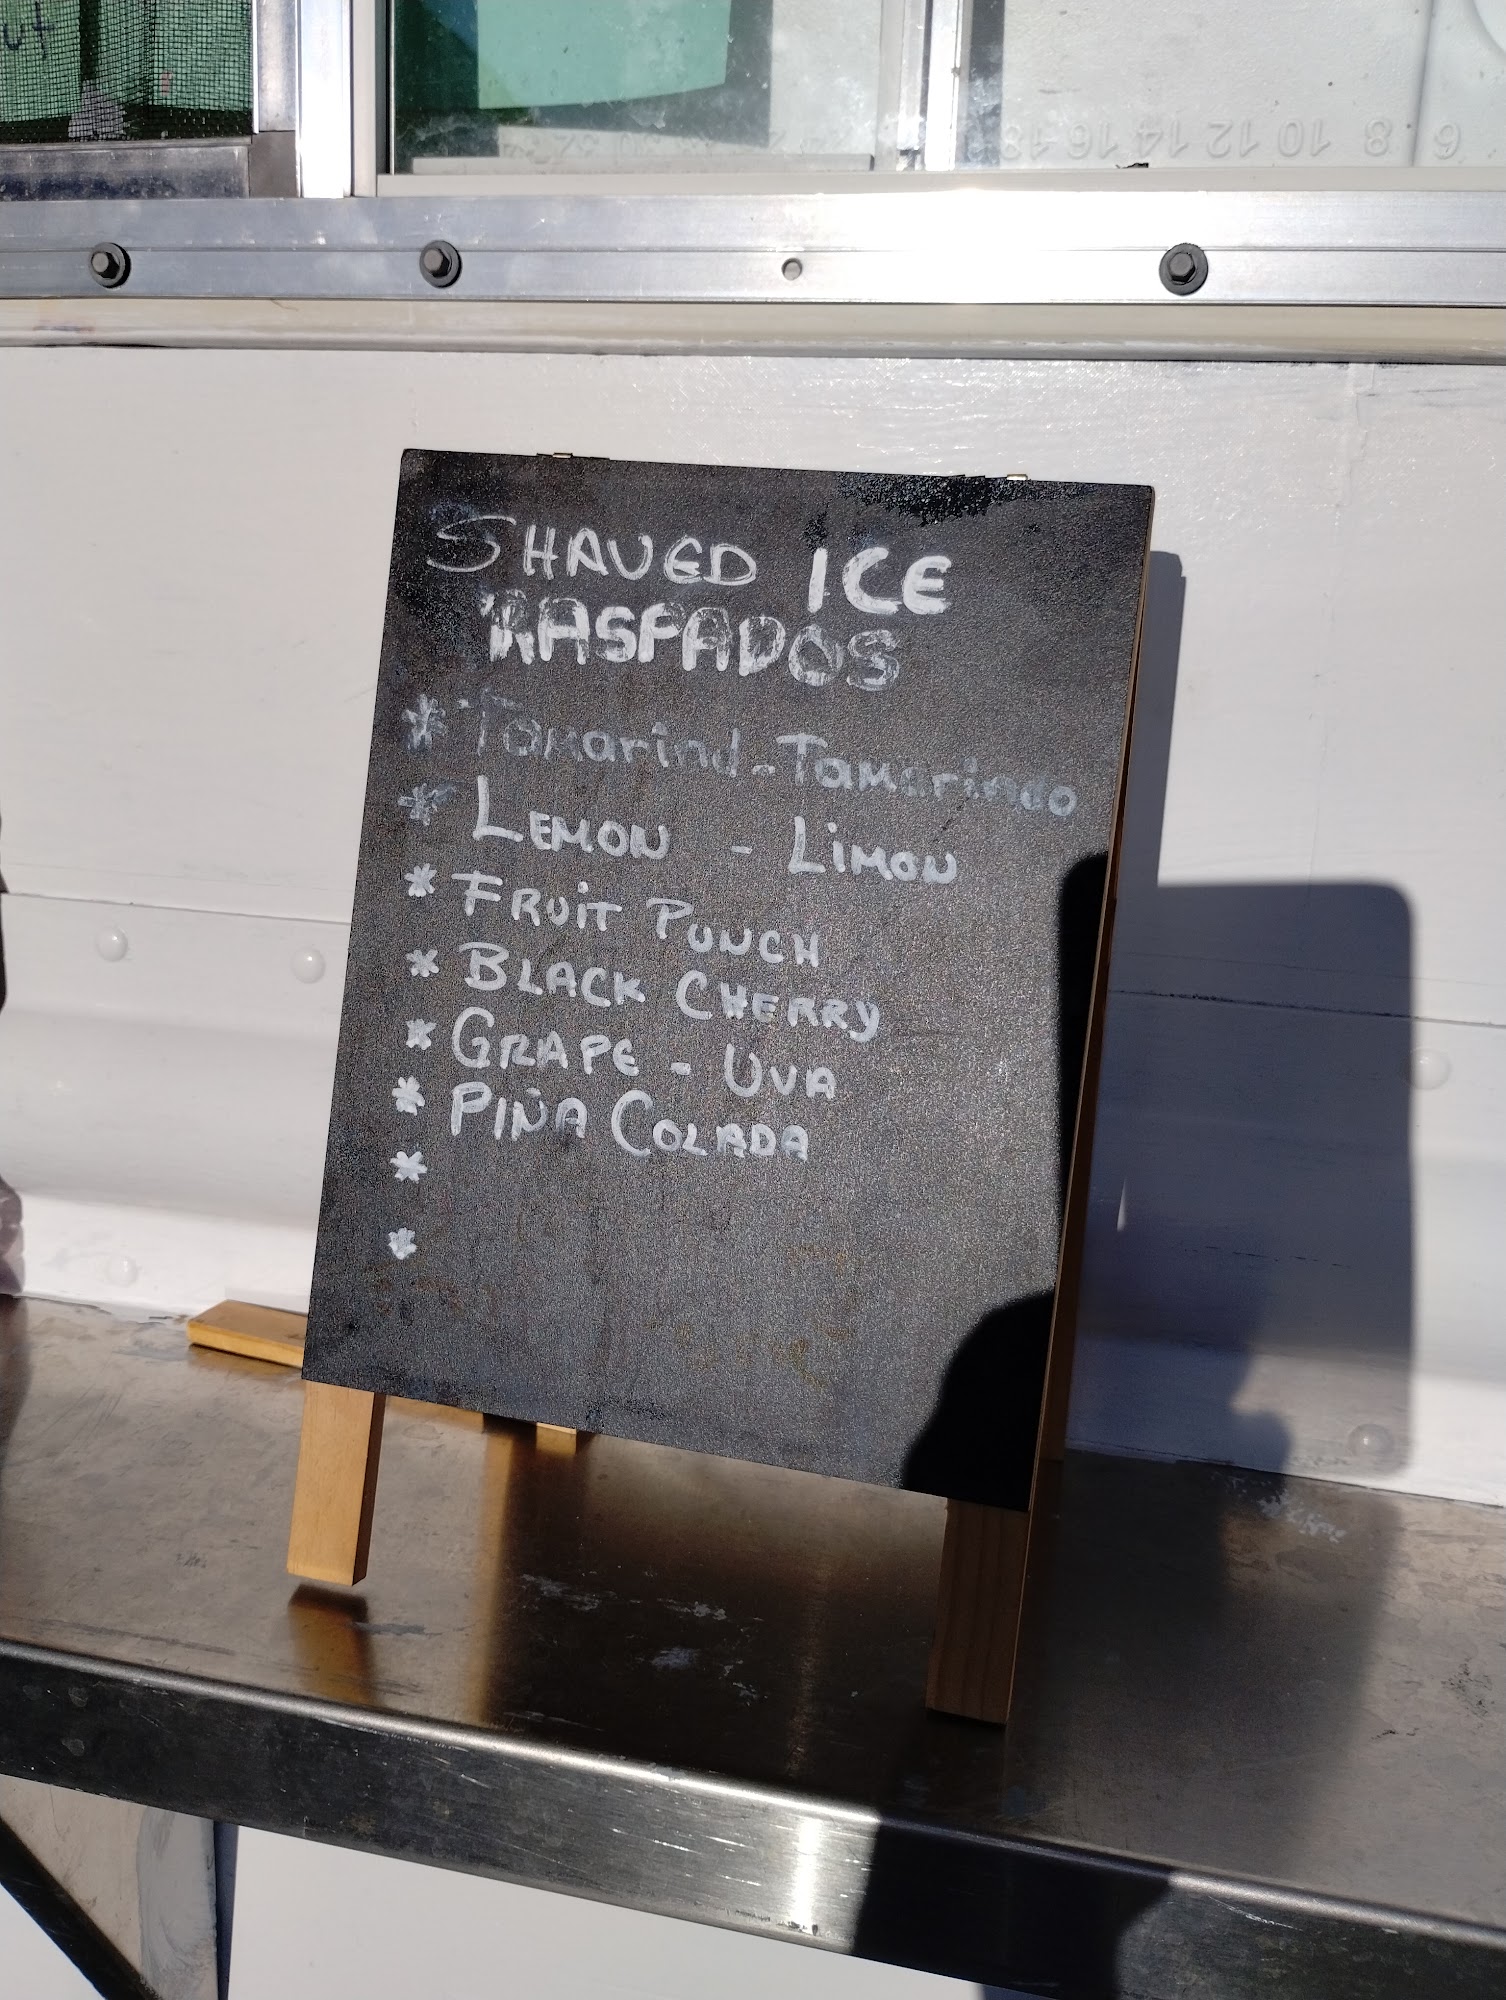 SHAVED ICE
RASPADOS
* Tamarind - Tamarindo
* LEMON - LIMON
* FRUIT PUNCH
* BLACK CHERRY
* GRAPE - UVA
* PIÑA COLADA
*
*
6 8 10 12 14 16 18
30 32